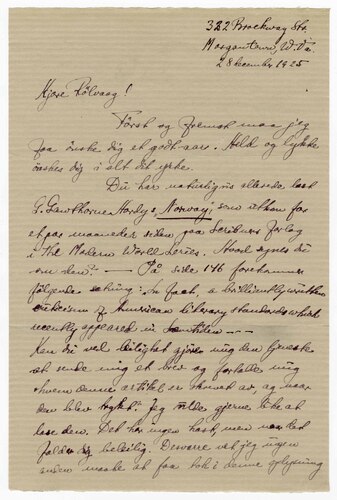 322 Brockway Str.
Morgantown, W. Va.
28 december 1925
Kjære Rölvaag!
Först og fremst maa jeg
faa önske dig et godt aar. Held og lykke
önskes dig i alt dit yrke.
Du har naturligvis allerede læst
G. Gawthorne Hardy's Norway, som utkom for
et par maaneder siden paa Scribners Forlag
i The Modern World Series. Hvad synes du
om den? — Paa side 146 forekommer
følgende sætning: In fact a brilliantly written
criticism of American literary standards which
recently appeared in Samtiden - - -
Kan du ved leilighet gjøre mig den tjeneste
at sende mig et brev og fortælle mig
hvem denne artikel er skrevet av og naar
den blev trykt? Jeg vilde gjerne like at
læse den. Det har ingen hast, men naar det
falder dig beleilig. Desværre vet jeg ingen
anden maate at faa tak i denne oplysning